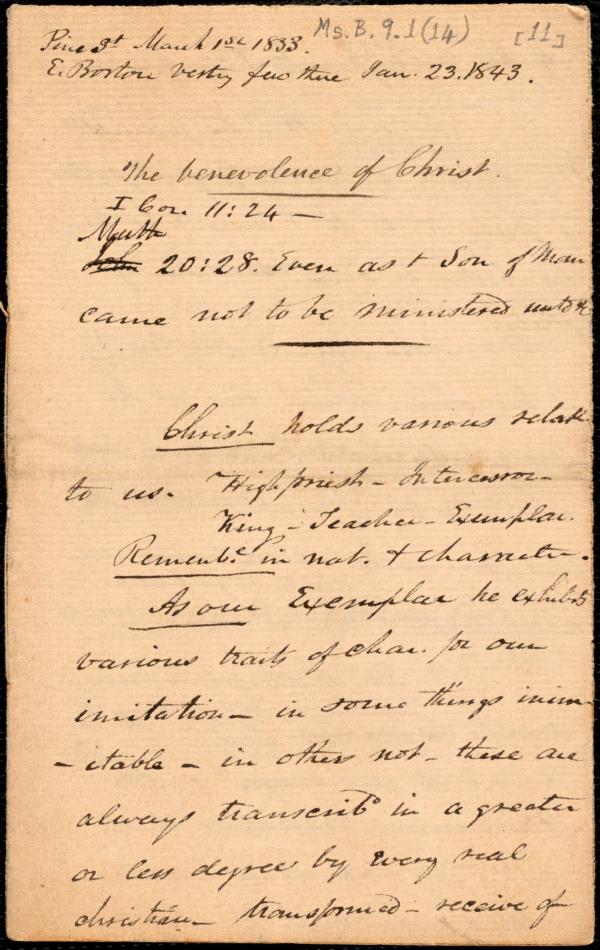 Ms. B. 9.1 (14) [11]
Pine St March 1st 1833.
E. Boston Vestry Jan. 23. 1843.
The benevolence of Christ.
I Cor. 11:24 —
Matth
John 20:28. Even as + Son of Man
came not to be ministered unto &c
Christ holds various relat.
to us. High priest – Intercessor –
King – Teacher – Exemplar.
in nat. & character.
As our Exemplar he exhibits
various traits of char. for our
imitation – in some things inim-
- itable – in others not – these are
always transcribd in a greater
or less degree by every real
christian – transformed – receive of